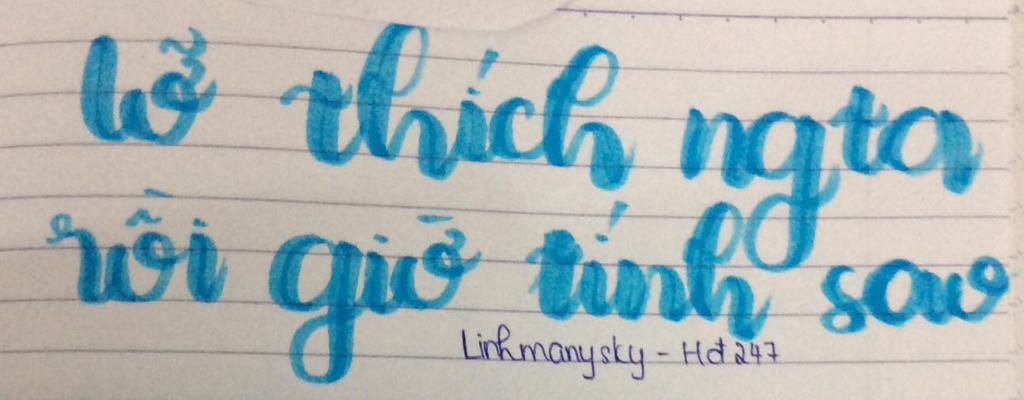 lỡ thích ngta
rồi giờ tính sao
Linhmanysky - Hđ247